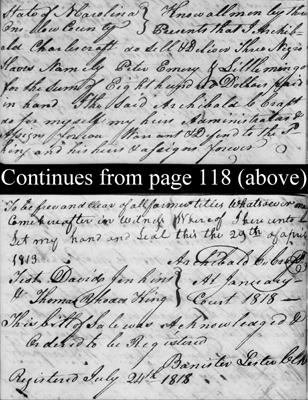 State of N Carolina } Know all men by these
Onslow County } Presents that I Archib
ald Charlescraft do sell & deliver three Negro
Slaves Namely Peter Emery & Littlemingo
for the sum of Eight hundred Dollars paid
in hand I the Said Archibald C Craft
do for myself my heirs Administrators &
Assign forever Warrant & Defend to the
and his heirs & assigns forever
Continues from page 118 (above)
To be free and clear of all former titles Whatsoever or
Come hereafter in witness Whereof I hereunto
Set my hand and Seal this 29th of april
1813 Archibald
Test David Jenkins } At January
Thomas Rhoads King } Court 1818 —
This bill of Sale was Acknowledged &
Ordered to be Registered
Banister Lester Clk
Registered July 24th 1818